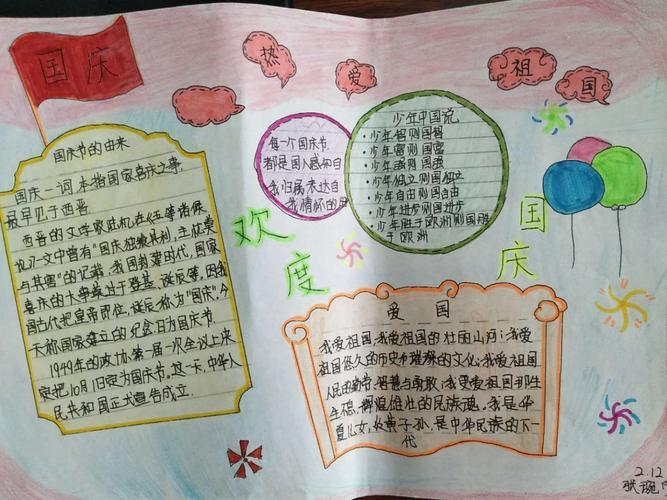 国庆
热爱祖国
国庆节的由来
国庆一词,本指国家喜庆之事,
最早见于西晋
西晋的文学家陆机在《五等诸侯
论》一文中曾有"国庆独飨其利,主忧莫
与其害"的记载,我国封建时代、国家
喜庆的大事莫过于登基、诞辰等,因我
国古代把皇帝即位、诞辰称为"国庆"。今
天称国家建立的纪念日为国庆节
1949年的政协第一届一次会议上决
定把10月1日定为国庆节,这一天,中华人
民共和国正式宣告成立。
每一个国庆节
都是国人感知自
我归属表达自
我情怀的日
少年中国说
·少年智则国智
·少年富则国富
·少年强则国强
·少年独立则国独立
·少年自由则国自由
·少年进步则国进步
·少年胜于欧洲则国胜
于欧洲
欢度
国庆
爱国
我爱祖国,我爱祖国的壮丽山河;我爱
祖国悠久的历史和璀璨的文化;我爱祖国
人民的勤劳、智慧与勇敢;我更爱祖国那生
生不息、辉煌雄壮的民族魂。我是华
夏儿女,炎黄子孙,是中华民族的下一
代
2.12
张